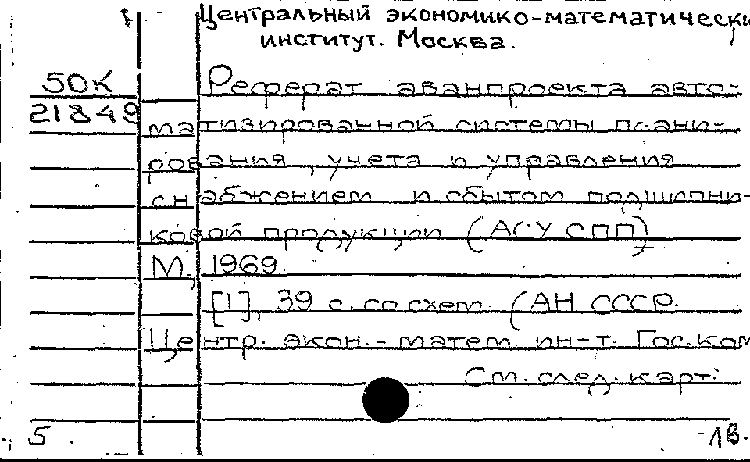 Центральный экономико-математически
институт. Москва.
50К Реферат аванпроекта авто-
21849 матизированной системы плани-
рования, учета и управления
снабжением и сбытом подшипни-
ковой продукции (АСУ СПП)
М., 1969.
[1], 39 с. со схем. (АН СССР.
Центр. экон.-матем. ин-т. Гос.ком
См. след. карт.
5 1в.